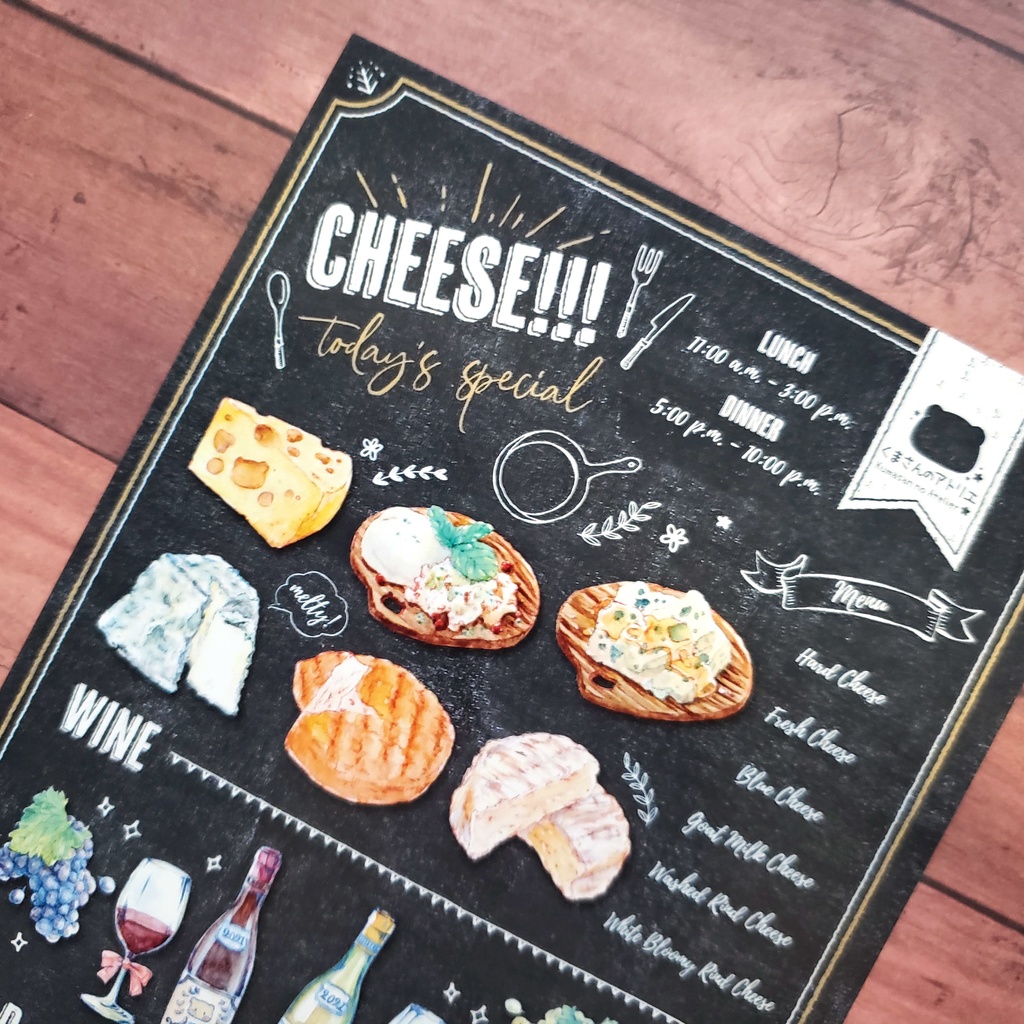 CHEESE!!!
today's special
LUNCH
11:00 a.m. - 3:00 p.m.
DINNER
5:00 p.m. - 10:00 p.m.
くまさんのアトリエ
Kumasan no Atelier
melty!
Menu
Hard Cheese
Fresh Cheese
Blue Cheese
Goat Milk Cheese
Washed Rind Cheese
White Bloomy Rind Cheese
WINE
2021
2021